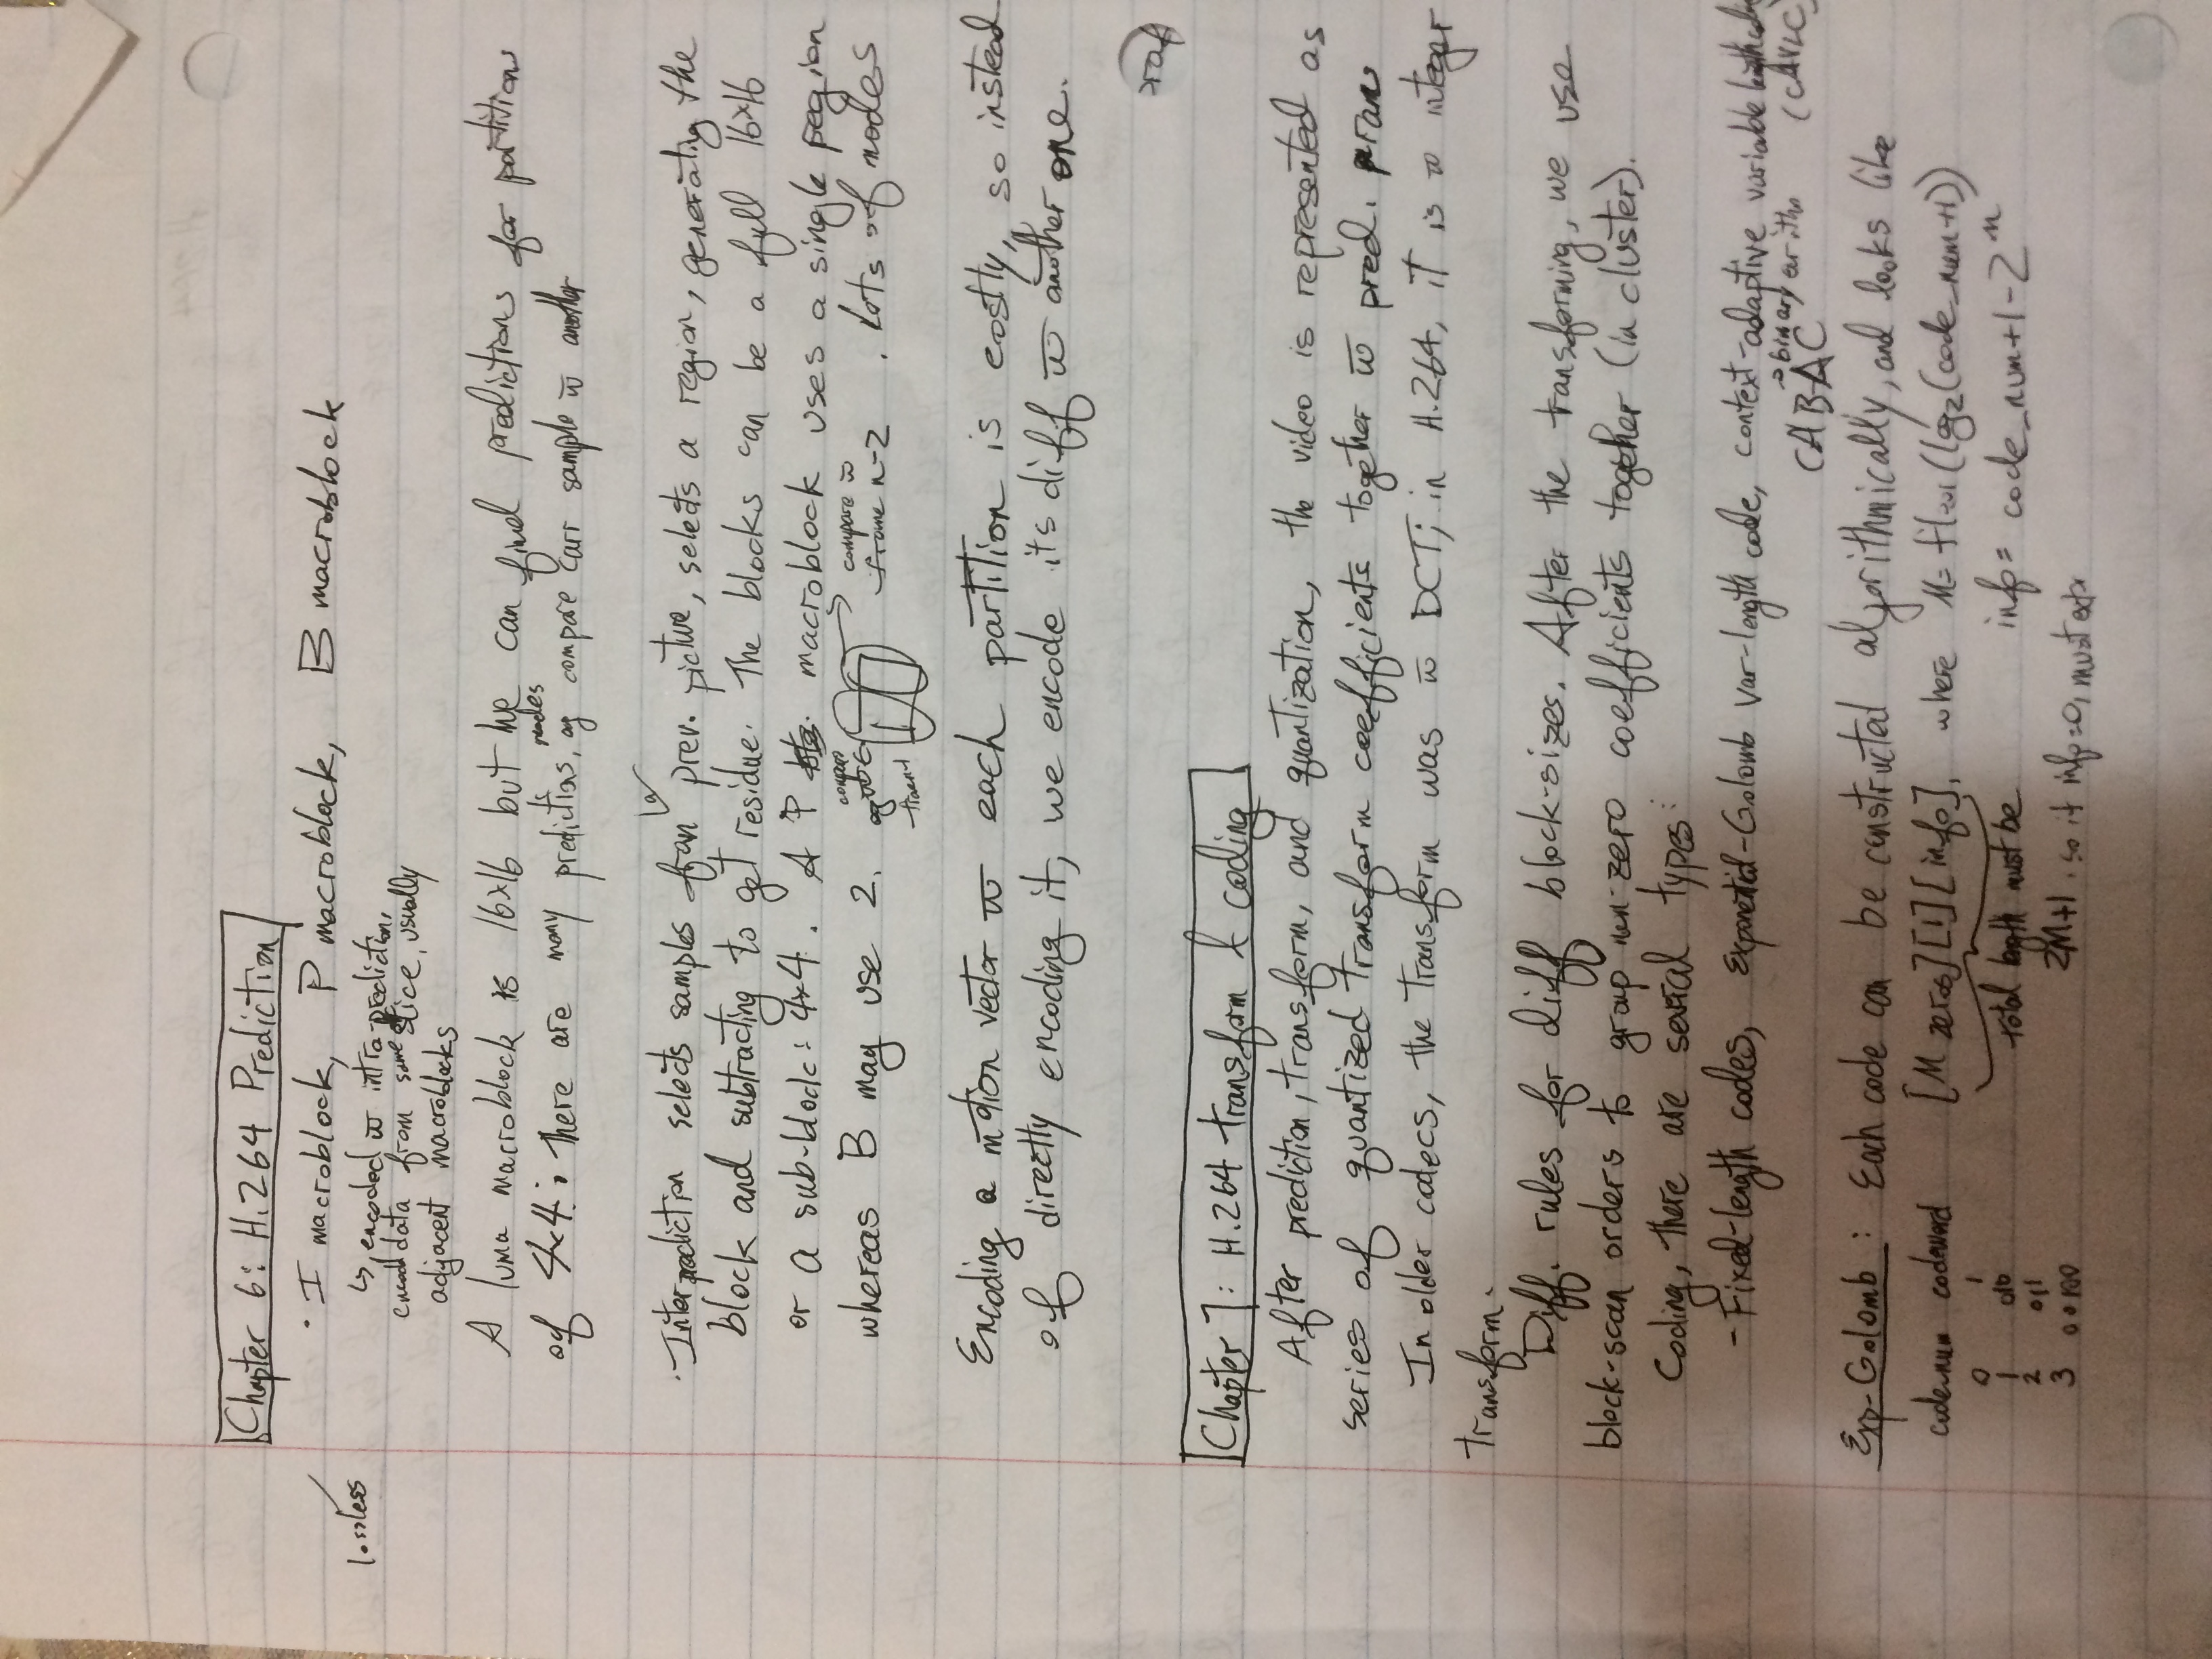 Chapter 6: H.264 Prediction
· I macroblock, P macroblock, B macroblock
lossless
↳ encoded w̄ intra-prediction,
encod data from same slice, usually
adjacent macroblocks
A luma macroblock is 16x16 but we can find predictions for partitions
of 4x4. There are many predictions, modes eg compare curr sample w̄ another
· Inter prediction selects samples from a prev. picture, selects a region, generating the
block and subtracting to get residue. The blocks can be a full 16x16
or a sub-block: 4x4. A P macroblock uses a single region
whereas B may use 2. eg compare w̄ compare w̄ frame n-2 . Lots of modes
Encoding a motion vector w̄ each partition is costly, so instead
of directly encoding it, we encode its diff w̄ another one.
Chapter 7: H.264 transform & coding
After prediction, transform, and quantization, the video is represented as
series of quantized transform coefficients together w̄ pred. param
In older codecs, the transform was w̄ DCT; in H.264, it is w̄ integer
transform.
Diff. rules for diff block-sizes. After the transforming, we use
block-scan orders to group non-zero coefficients together (in cluster).
Coding, there are several types:
- Fixed-length codes, Exponential-Golomb var-length code, context-adaptive variable length coding
CABAC → binary arithm (CAVLC)
Exp-Golomb: Each code can be constructed algorithmically, and looks like
code-num codeword [M zeros][1][info], where M= floor(log₂(code_num+1))
0 1
1 010 total length must be info= code_num+1-2ᵐ
2 011
3 00100 2M+1. so if info=0, must extr